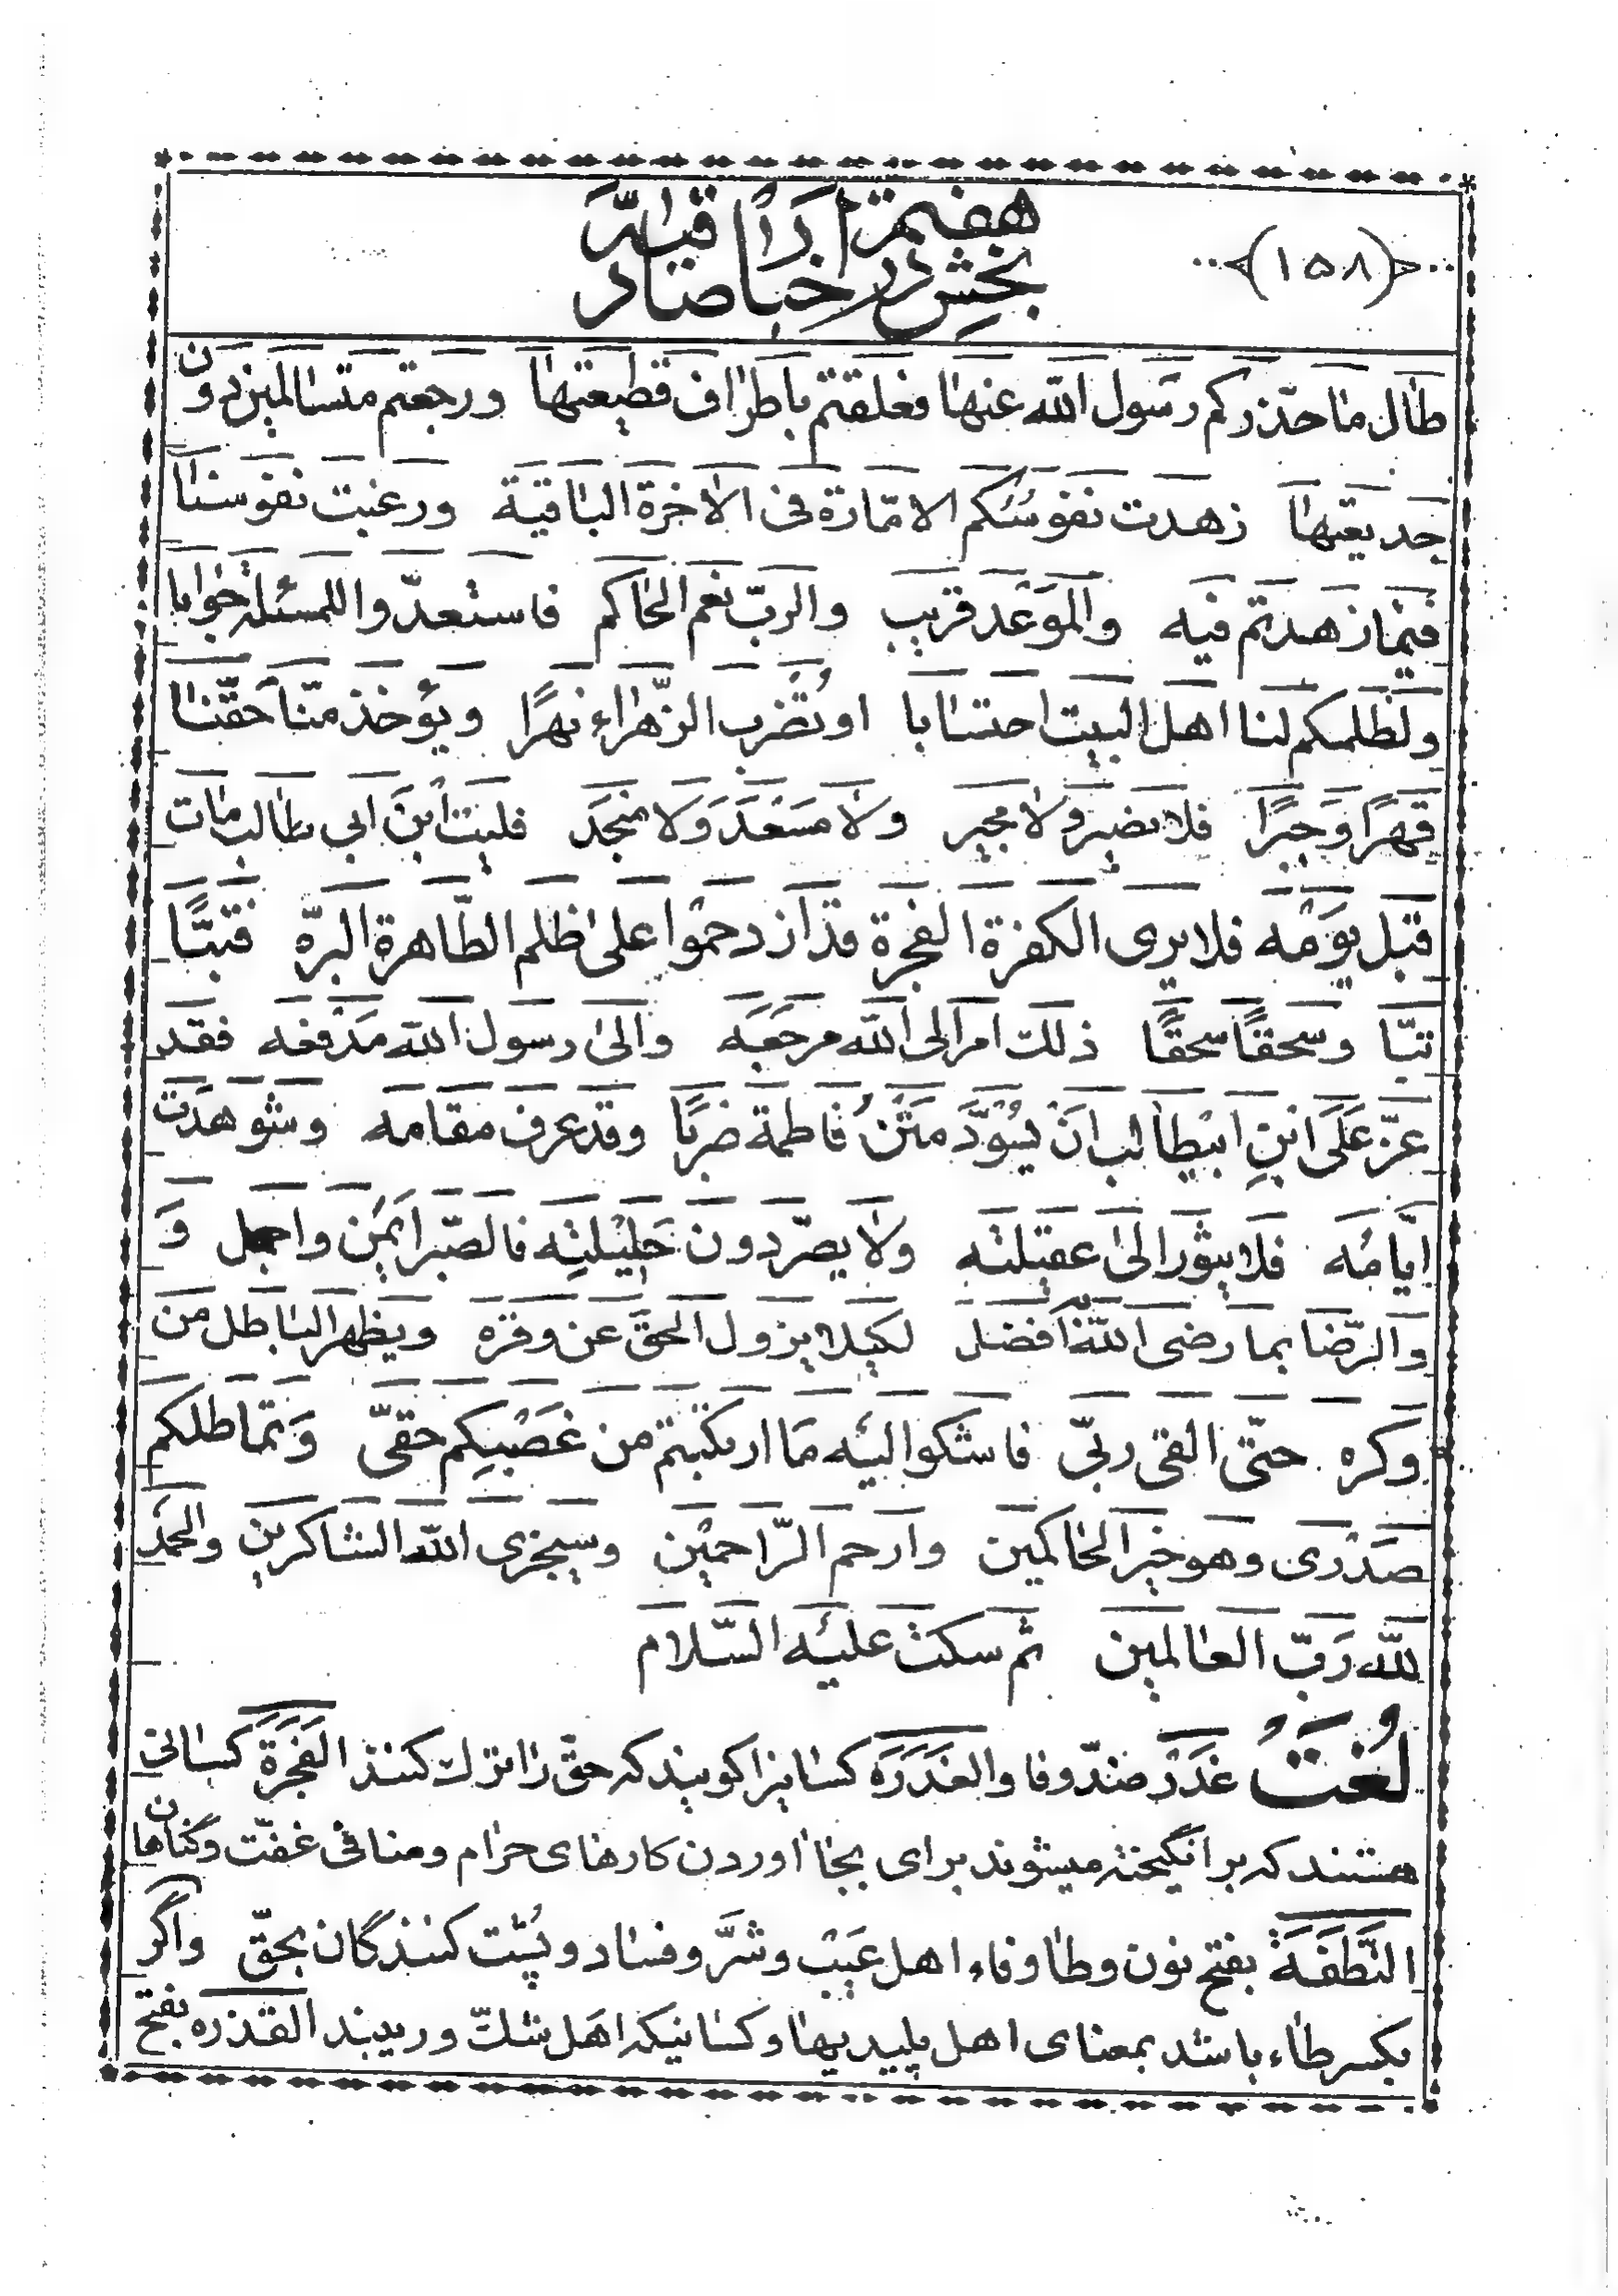 (۱۵۸)
بخش هفتم در اخبار صادقیه
طال ما حذّرکم رسول الله عنها فعلقتم باطراف قطیعتها ورجعتم متسالمین دون
جدیعتها زهدت نفوسکم الامّارة فی الاخرة الباقیة ورغبت نفوسنا
فیما زهدتم فیه والموعد قریب والربّ نعم الحاکم فاستعدّوا للمسئلة جوابا
ولظلمکم لنا اهل البیت احتسابا او تُضرب الزّهراء نهرًا ویؤخذ منّا حقّنا
قهرًا وجبرًا فلا نصیر ولا مجیر ولا مسعد ولا منجد فلیت ابن ابی طالب مات
قبل یومه فلا یری الکفرة الفجرة قد ازدحموا علی ظلم الطّاهرة البرّه فتبّا
تبّا وسحقًا سحقًا ذلک امر الی الله مرجعه والی رسول الله مدفعه فقد
عزّ علی ابن ابیطالب ان یسوّد متن فاطمة ضربًا وقد عرف مقامه وشوهدت
ایّامه فلا یثور الی عقیلته ولا یصرّ دون حلیلته فالصّبر ایمن واجمل وَ
والرّضا بما رضی الله افضل لکیلا یزول الحقّ عن وقره ویظهر الباطل من
وکره حتّی القی ربّی فاشکو الیه ما ارتکبتم من غصبکم حقیّ وتماطلکم
صدری وهو خیر الحاکمین وارحم الرّاحمین وسیجزی الله الشاکرین والحمد
لله ربّ العالمین ثم سکت علیه السّلام
لُغَت غدر ضدّ وفا والغدرة کسانیرا کویند که حقّ را ترک کنند الفجرة کسانی
هستند که برانگیخته میشوند برای بجا اوردن کارهای حرام ومنافی عفّت وگناهان
النَّطَفَة بفتح نون وطا وفاء اهل عیب وشرّ وفساد وپشت کنندگان بحقّ واگر
بکسر طاء باشد بمعنای اهل پلیدیها وکسانیکه اهل شکّ وریبند القذره بفتح